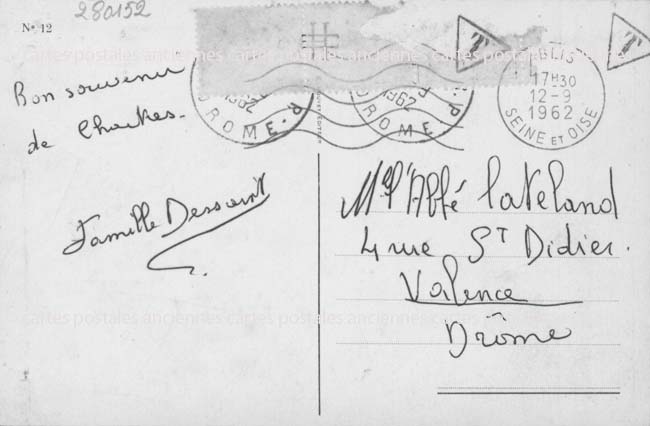 280152
N° 12
T
T
BLIS
17H30
12-9
1962
SEINE ET OISE
1962
DROME
1962
DROME
cartes postales anciennes cartes postales anciennes cartes postales anciennes
Bon souvenir
de Chartres.
Famille Dessaint
Mr l'Abbé Lateland
4 rue St Didier.
Valence
Drôme
cartes postales anciennes cartes postales anciennes cartes postales anciennes